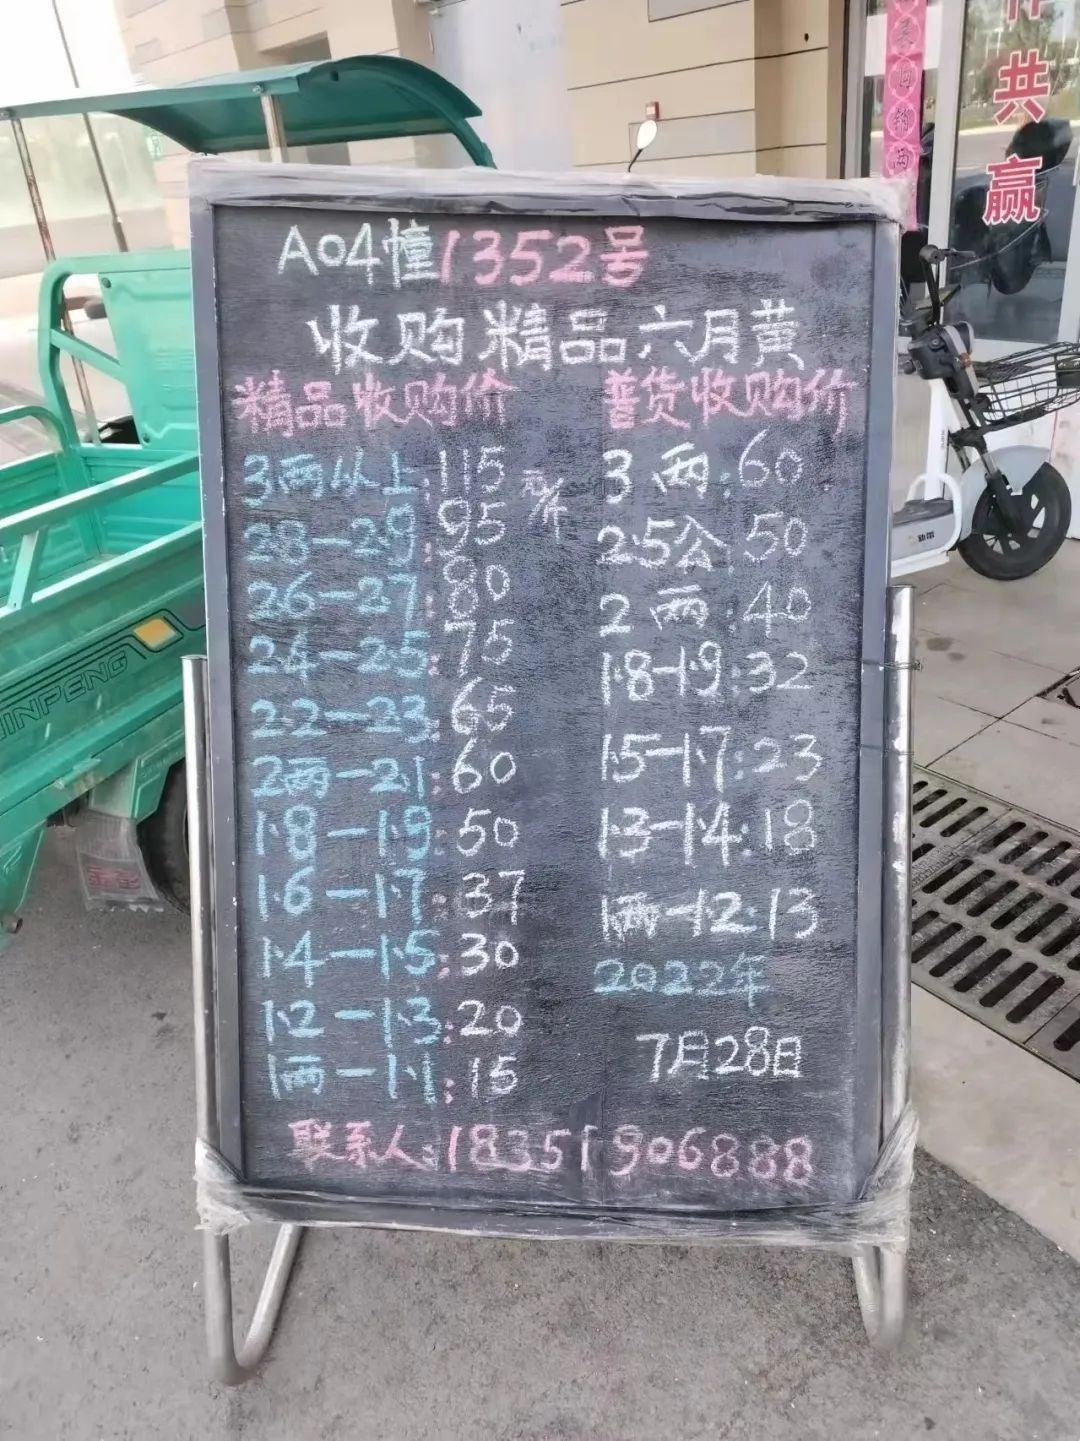 A04幢1352号
收购精品六月黄
精品收购价
3两以上:115元/斤
2.8-2.9:95
2.6-2.7:80
2.4-2.5:75
2.2-2.3:65
2两-2.1:60
1.8-1.9:50
1.6-1.7:37
1.4-1.5:30
1.2-1.3:20
1两-1.1:15
普货收购价
3两:60
2.5公:50
2两:40
1.8-1.9:32
1.5-1.7:23
1.3-1.4:18
1两-1.2:13
2022年
7月28日
联系人:18351906888
共
赢
INPENG